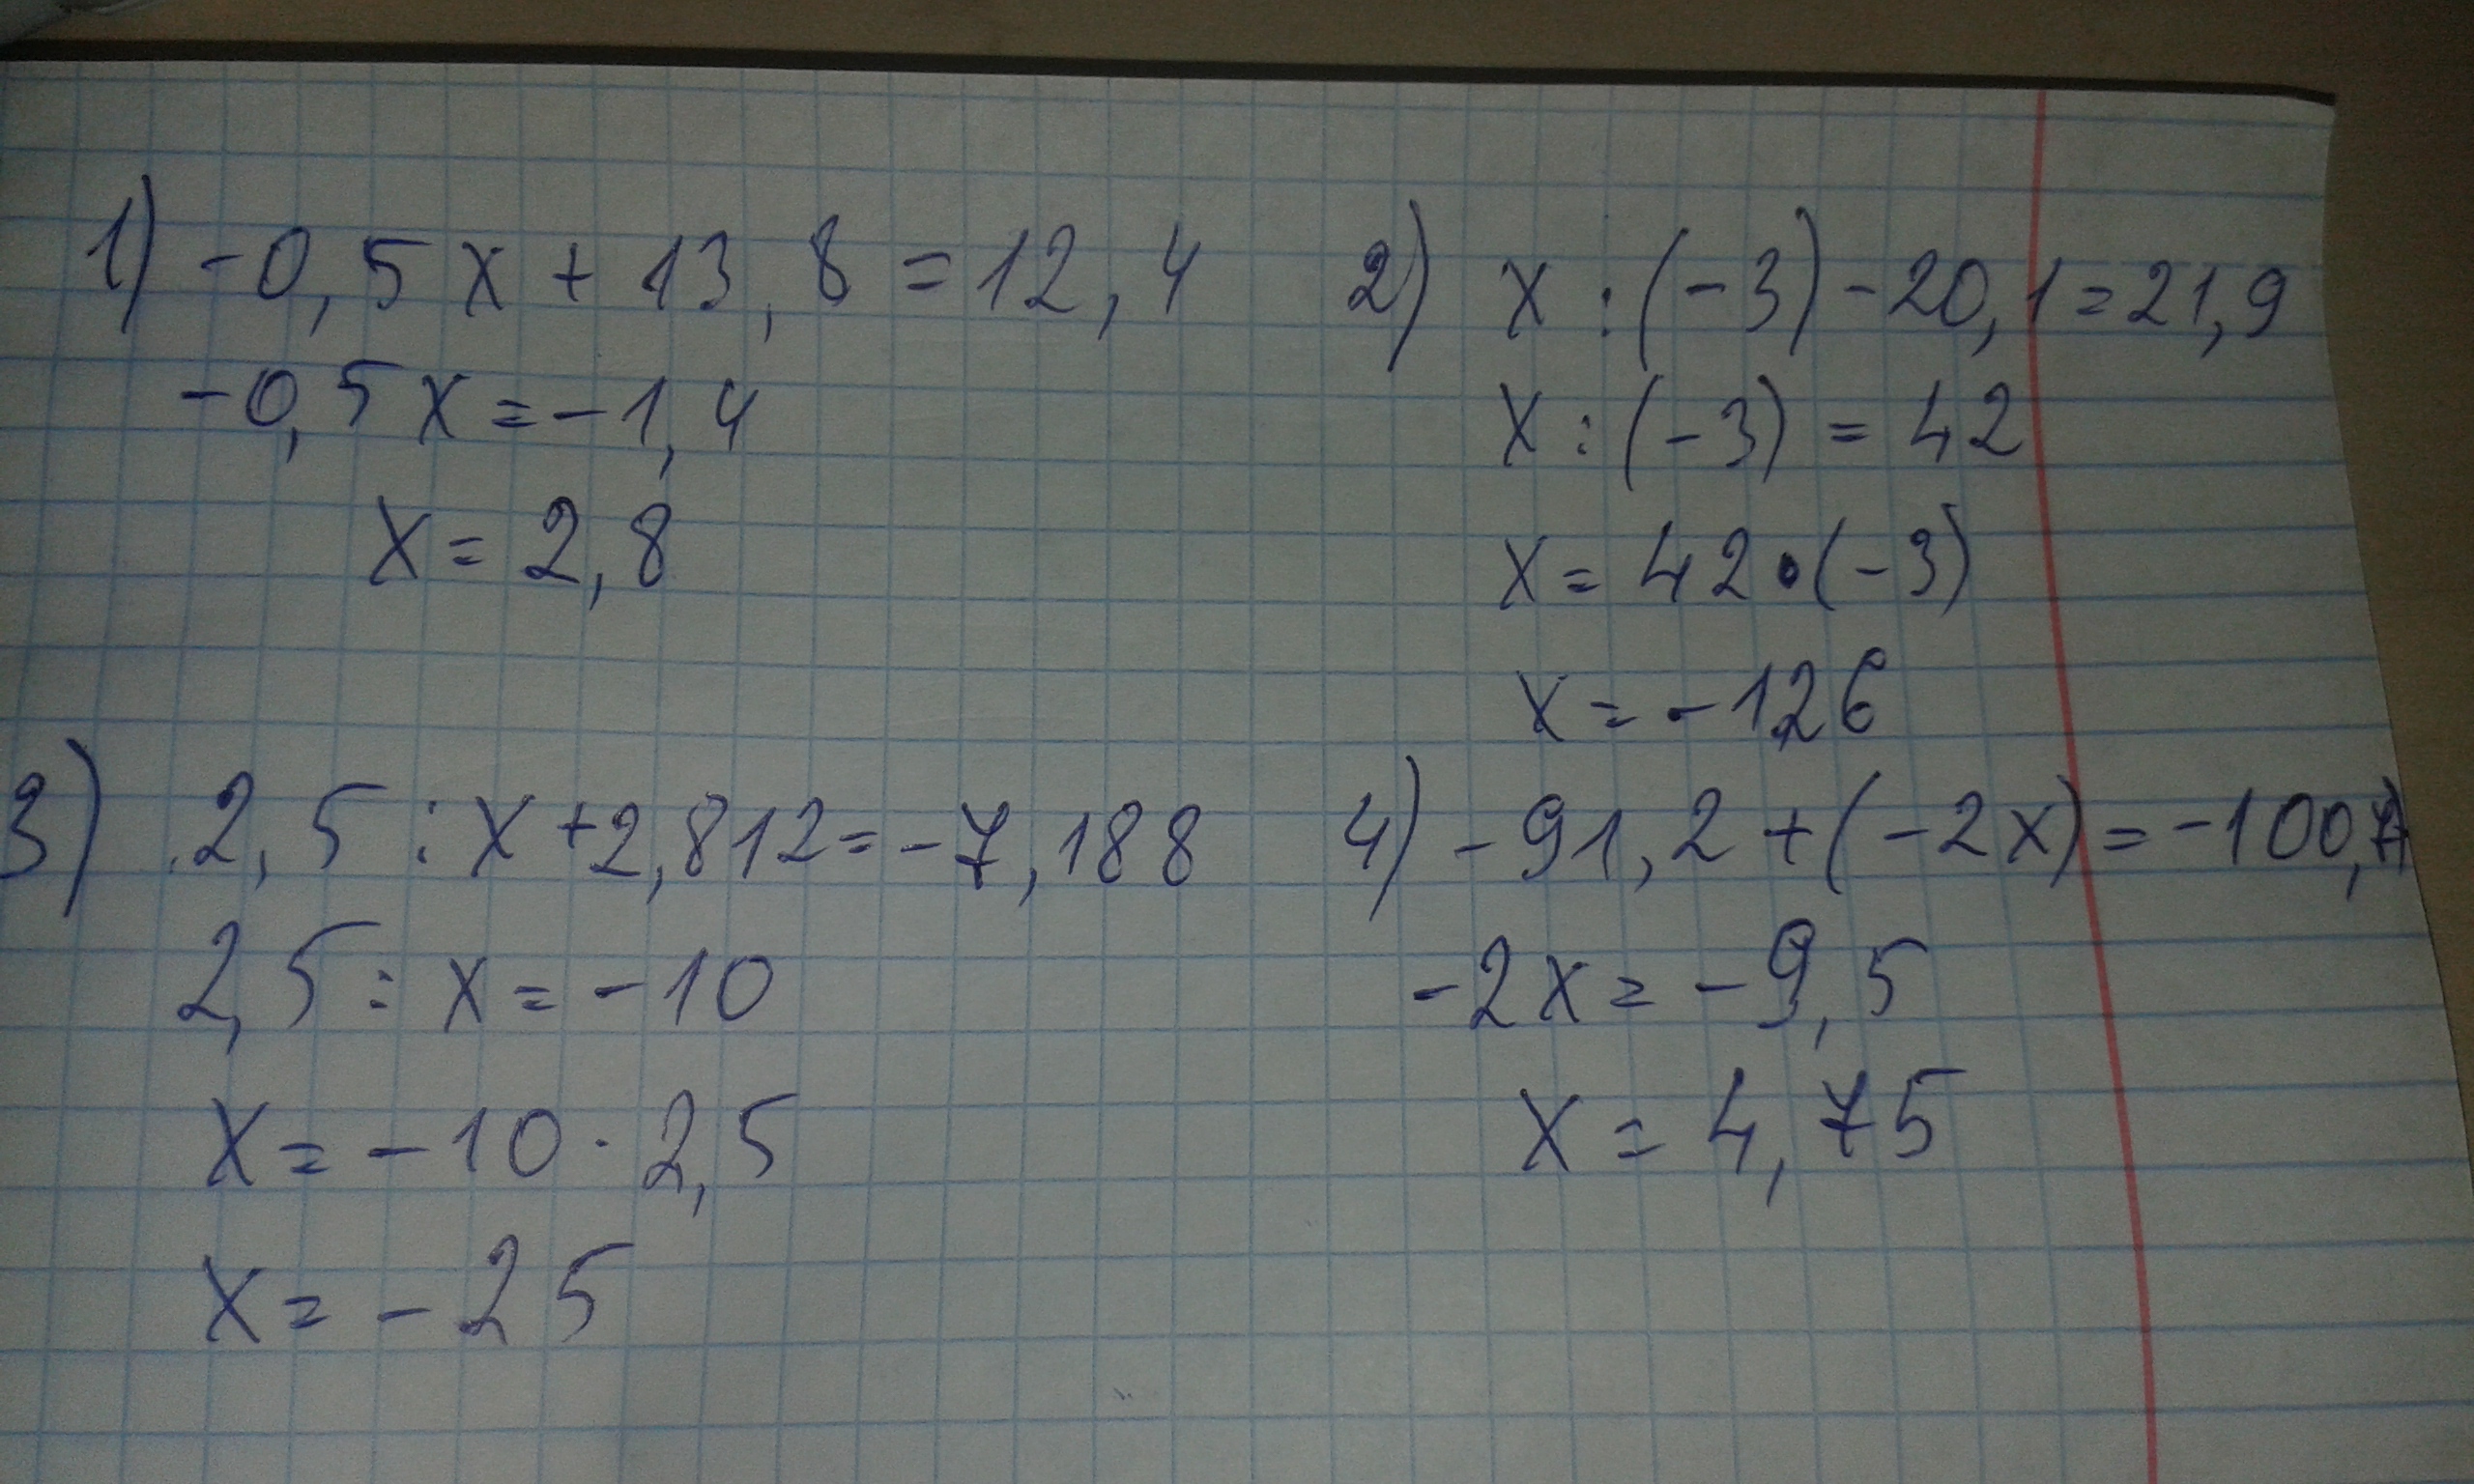 1) -0,5x + 13,8 = 12,4
-0,5x = -1,4
x = 2,8
2) x : (-3) - 20,1 = 21,9
x : (-3) = 42
x = 42 • (-3)
x = -126
3) 2,5 : x + 2,812 = -7,188
2,5 : x = -10
x = -10 · 2,5
x = -25
4) -91,2 + (-2x) = -100,7
-2x = -9,5
x = 4,75